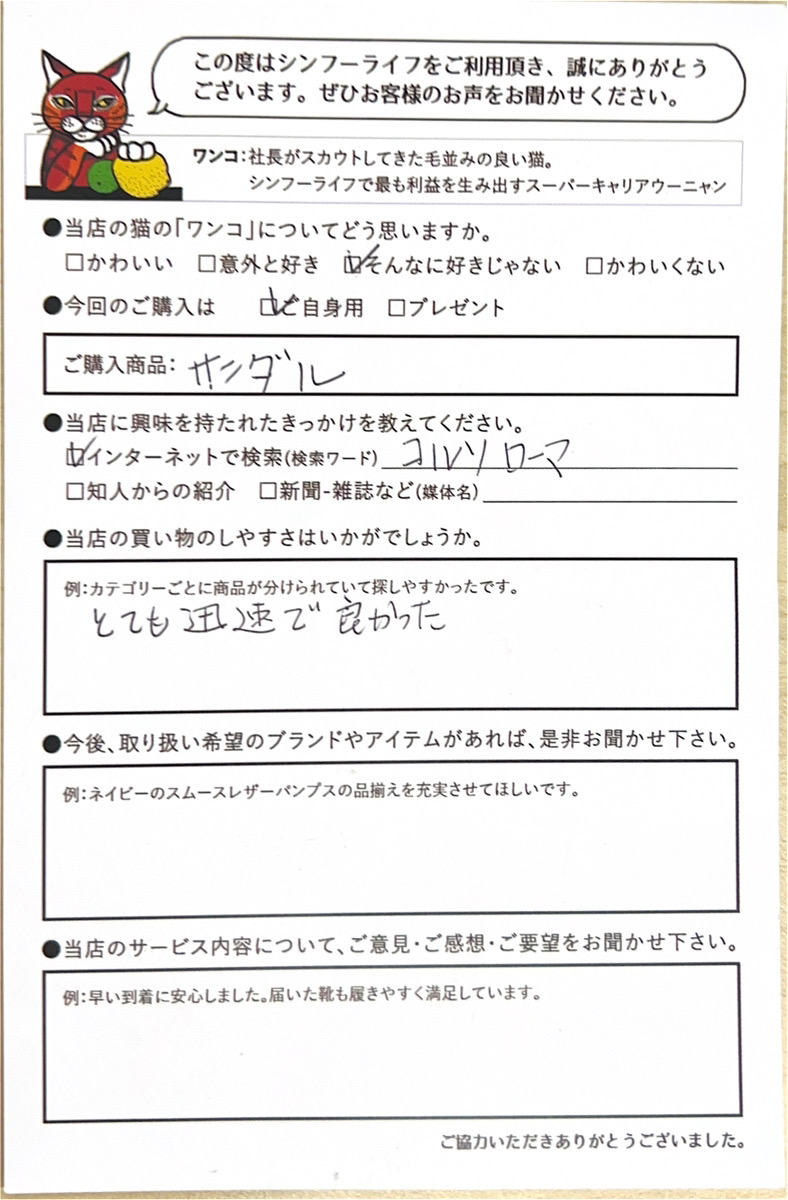 この度はシンフーライフをご利用頂き、誠にありがとう
ございます。ぜひお客様のお声をお聞かせください。
ワンコ：社長がスカウトしてきた毛並みの良い猫。
シンフーライフで最も利益を生み出すスーパーキャリアウーニャン
●当店の猫の「ワンコ」についてどう思いますか。
□かわいい □意外と好き ☑そんなに好きじゃない □かわいくない
●今回のご購入は ☑ご自身用 □プレゼント
ご購入商品： サンダル
●当店に興味を持たれたきっかけを教えてください。
☑インターネットで検索(検索ワード) コルソローマ
□知人からの紹介 □新聞-雑誌など(媒体名)
●当店の買い物のしやすさはいかがでしょうか。
例：カテゴリーごとに商品が分けられていて探しやすかったです。
とても迅速で良かった
●今後、取り扱い希望のブランドやアイテムがあれば、是非お聞かせ下さい。
例：ネイビーのスムースレザーパンプスの品揃えを充実させてほしいです。
●当店のサービス内容について、ご意見・ご感想・ご要望をお聞かせ下さい。
例：早い到着に安心しました。届いた靴も履きやすく満足しています。
ご協力いただきありがとうございました。